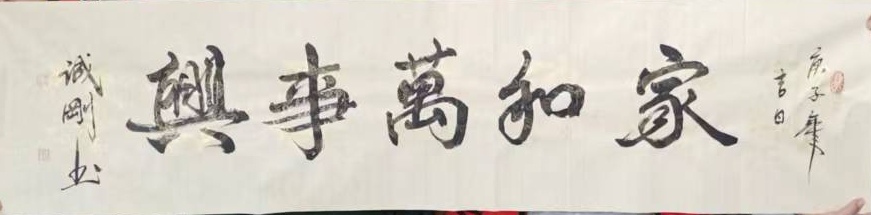 庚子年
吉日
家和萬事興
誠剛书